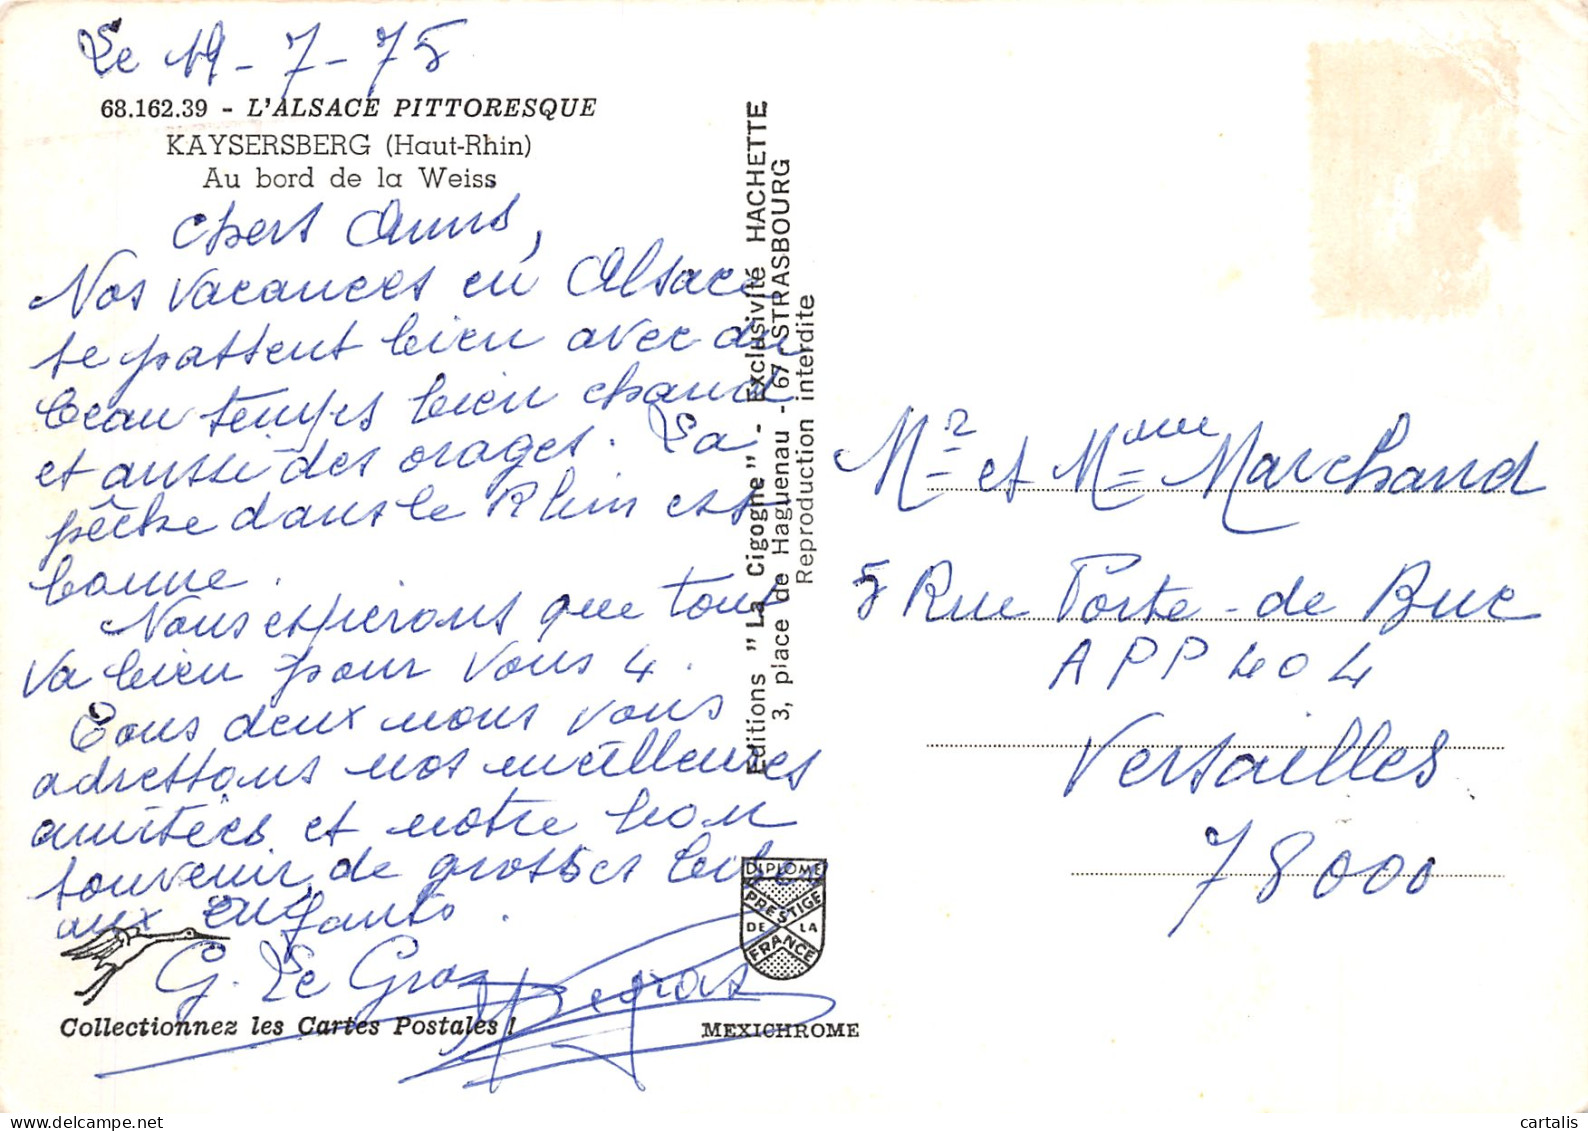 Le 19-7-75
68.162.39 - L'ALSACE PITTORESQUE
KAYSERSBERG (Haut-Rhin)
Au bord de la Weiss
Chers Amis,
Nos vacances en Alsace
se passent bien avec du
beau temps bien chaud
et aussi des orages. La
pêche dans le Rhin est
bonne.
Nous espérons que tout
va bien pour vous 4.
Tous deux nous vous
adressons nos meilleures
amitiés et notre bon
souvenir, de grosses bises
aux enfants.
G. Le Graz
Collectionnez les Cartes Postales !
Editions "La Cigogne" - Exclusivité HACHETTE
3, place de Haguenau - 67 STRASBOURG
Reproduction interdite
DIPLOME
PRESTIGE
DE LA
FRANCE
MEXICHROME
Mr et Mme Marchand
5 Rue Porte-de Buc
APP 404
Versailles
78000
cartalis